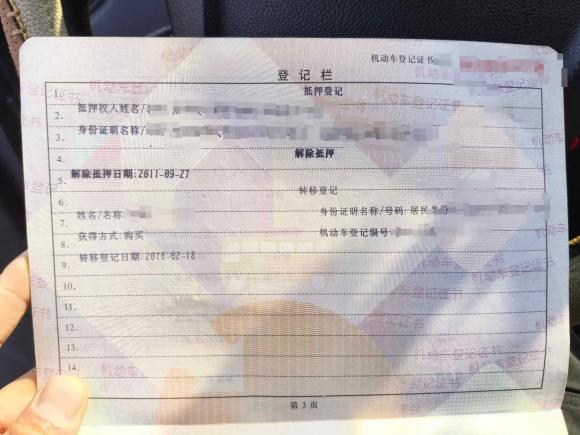 机动车登记证书
登记栏
1. 抵押登记
2. 抵押权人姓名/名
3. 身份证明名称/
4. 解除抵押
5. 解除抵押日期:2011-09-27
6. 转移登记
7. 姓名/名称: 身份证明名称/号码:居民身份
8. 获得方式:购买 机动车登记编号:
9. 转移登记日期:2016-02-18
10.
11.
12.
13.
14.
第 3 页